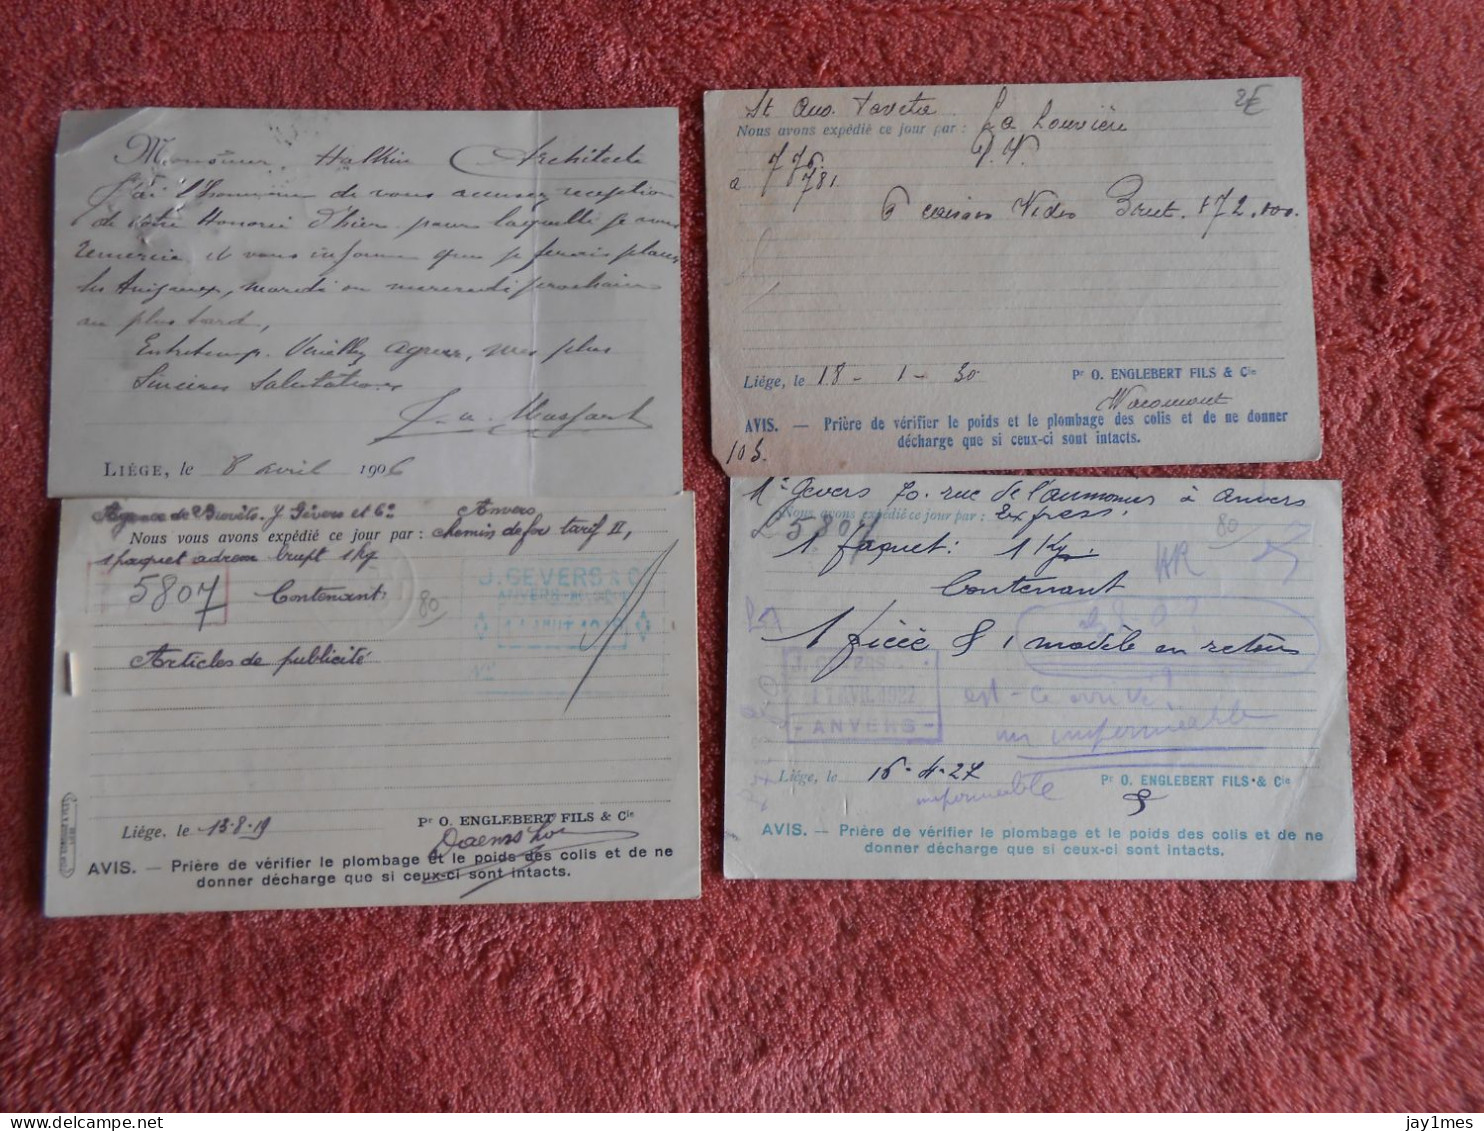 Monsieur Halkin Architecte
J'ai l'honneur de vous accuser reception
de votre Honoré d'hier pour laquelle je vous
remercie et vous informe que je ferais placer
les Anigaux, mardi ou mercredi prochain
au plus tard,
Entretemps Veuillez agréer, mes plus
Sincères Salutations
LIÉGE, le 8 avril 1906
2€
La Louvière
Nous avons expédié ce jour par :
P.V.
776
a 781
6 caisses Vides Brut. 172.000.
Liége, le 18 - 1 - 30
Pr O. ENGLEBERT FILS & Cie
AVIS. — Prière de vérifier le poids et le plombage des colis et de ne donner
décharge que si ceux-ci sont intacts.
103.
Agence de Brevets. J. Gevers et Co Anvers
Nous vous avons expédié ce jour par : chemin de fer tarif II,
1 paquet adresse brupt 1 kg
5807 Contenant
80
J. GEVERS & C
Articles de publicité
No
Liége, le 13-8-19
Pr O. ENGLEBERT FILS & Cie
AVIS. — Prière de vérifier le plombage et le poids des colis et de ne
donner décharge que si ceux-ci sont intacts.
Mr Gevers 70. rue de l'aumonier à Anvers
Nous avons expédié ce jour par : Express.
5807
80
1 paquet : 1 Kg.
Contenant
1 pièce & 1 modèle en retour
J. GEVERS
AVRIL 1927
- ANVERS -
est-ce arrivé
un imperméable
Liége, le 16-4-27
imperméable
Pr O. ENGLEBERT FILS & Cie
AVIS. — Prière de vérifier le plombage et le poids des colis et de ne
donner décharge que si ceux-ci sont intacts.
delcampe.net
jay1mes